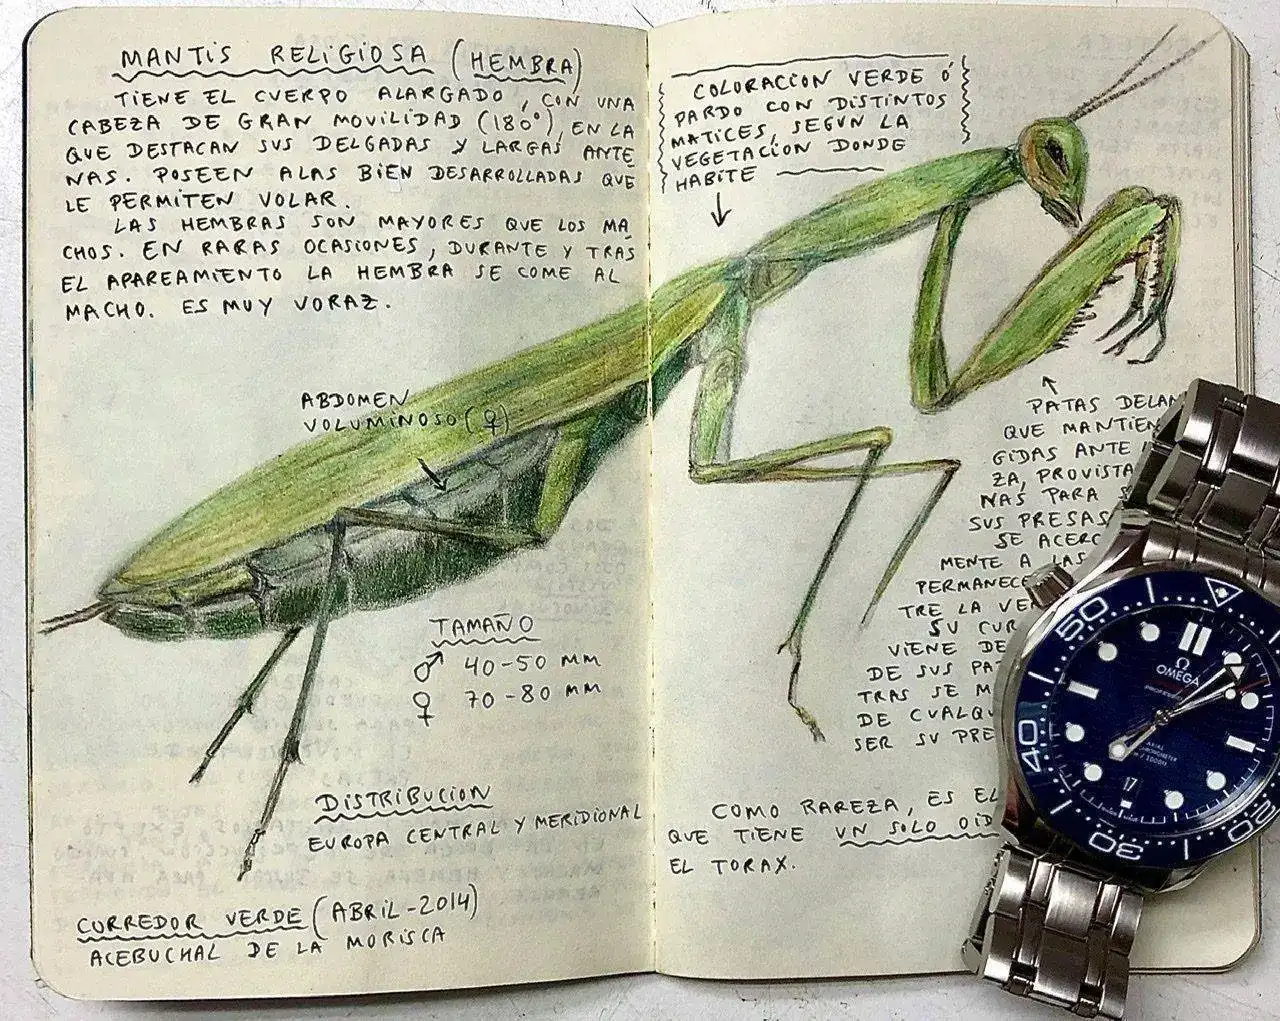 MANTIS RELIGIOSA (HEMBRA)
TIENE EL CUERPO ALARGADO, CON UNA
CABEZA DE GRAN MOVILIDAD (180°), EN LA
QUE DESTACAN SUS DELGADAS Y LARGAS ANTE
NAS. POSEEN ALAS BIEN DESARROLLADAS QUE
LE PERMITEN VOLAR.
LAS HEMBRAS SON MAYORES QUE LOS MA
CHOS. EN RARAS OCASIONES, DURANTE Y TRAS
EL APAREAMIENTO LA HEMBRA SE COME AL
MACHO. ES MUY VORAZ.
ABDOMEN
VOLUMINOSO (♀)
TAMAÑO
♂ 40-50 MM
♀ 70-80 MM
DISTRIBUCION
EUROPA CENTRAL Y MERIDIONAL
CORREDOR VERDE (ABRIL-2014)
ACEBUCHAL DE LA MORISCA
COLORACION VERDE Ó
PARDO CON DISTINTOS
MATICES, SEGUN LA
VEGETACION DONDE
HABITE
PATAS DELAN
QUE MANTIEN
GIDAS ANTE
ZA, PROVISTA
NAS PARA
SUS PRESAS
SE ACERC
MENTE A LAS
PERMANECE
TRE LA VE
SU CUR
VIENE DE
DE SUS PA
TRAS SE M
DE CUALQU
SER SU PRE
COMO RAREZA, ES EL
QUE TIENE UN SOLO OID
EL TORAX.
50
Ω
OMEGA
PROFESSIONAL
17
40
30
20